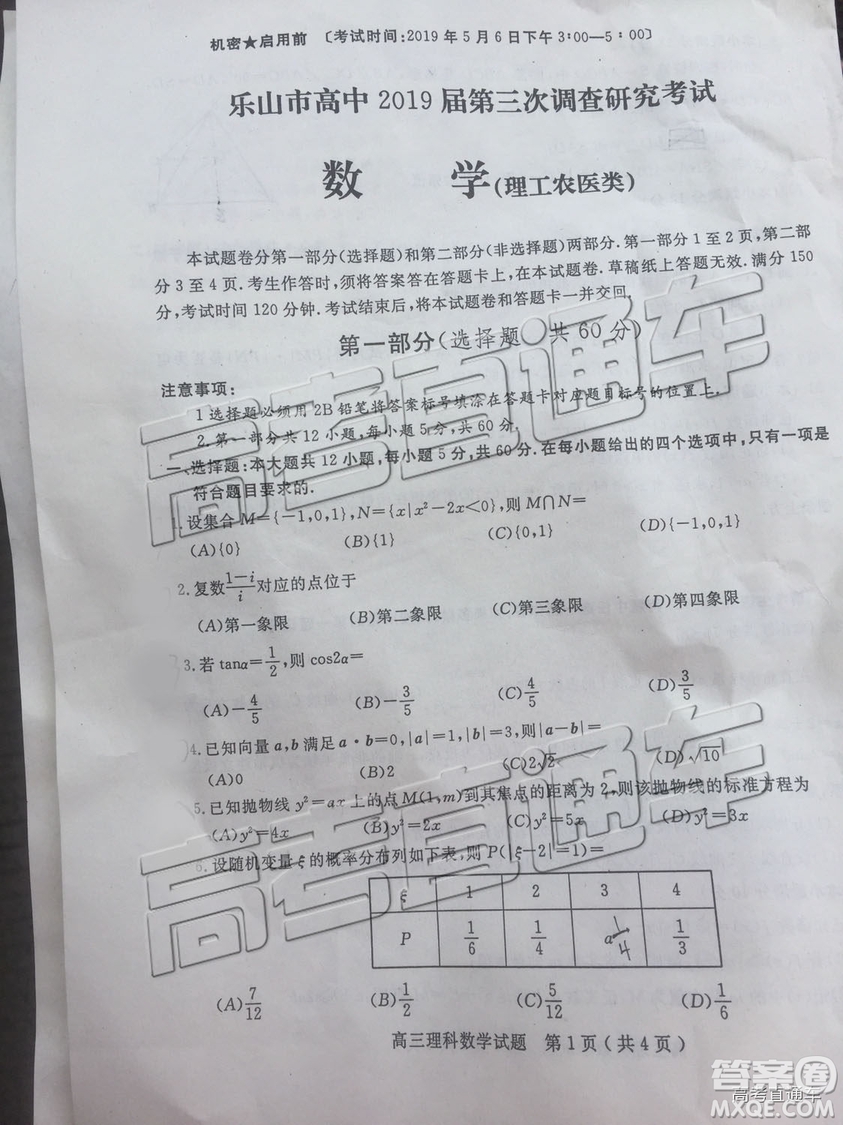 机密★启用前 〔考试时间:2019年5月6日下午3:00—5:00〕
乐山市高中2019届第三次调查研究考试
数 学(理工农医类)
本试题卷分第一部分(选择题)和第二部分(非选择题)两部分.第一部分1至2页,第二部
分3至4页.考生作答时,须将答案答在答题卡上,在本试题卷、草稿纸上答题无效.满分150
分,考试时间120分钟.考试结束后,将本试题卷和答题卡一并交回.
第一部分(选择题 共60分)
注意事项:
1.选择题必须用2B铅笔将答案标号填涂在答题卡对应题目标号的位置上.
2.第一部分共12小题,每小题5分,共60分.
一、选择题:本大题共12小题,每小题5分,共60分.在每小题给出的四个选项中,只有一项是
符合题目要求的.
1.设集合M={-1,0,1},N={x|x²-2x<0},则M∩N=
(A){0} (B){1} (C){0,1} (D){-1,0,1}
2.复数(1-i)/i对应的点位于
(A)第一象限 (B)第二象限 (C)第三象限 (D)第四象限
3.若tanα=1/2,则cos2α=
(A)-4/5 (B)-3/5 (C)4/5 (D)3/5
4.已知向量a,b满足a·b=0,|a|=1,|b|=3,则|a-b|=
(A)0 (B)2 (C)2√2 (D)√10
5.已知抛物线y²=ax上的点M(1,m)到其焦点的距离为2,则该抛物线的标准方程为
(A)y²=4x (B)y²=2x (C)y²=5x (D)y²=3x
6.设随机变量ξ的概率分布列如下表,则P(|ξ-2|=1)=
ξ 1 2 3 4
P 1/6 1/4 a 1/4 1/3
(A)7/12 (B)1/2 (C)5/12 (D)1/6
高三理科数学试题 第1页(共4页)
高考直通车
高考直通车
答案圈
高考直通车
MXQE.COM